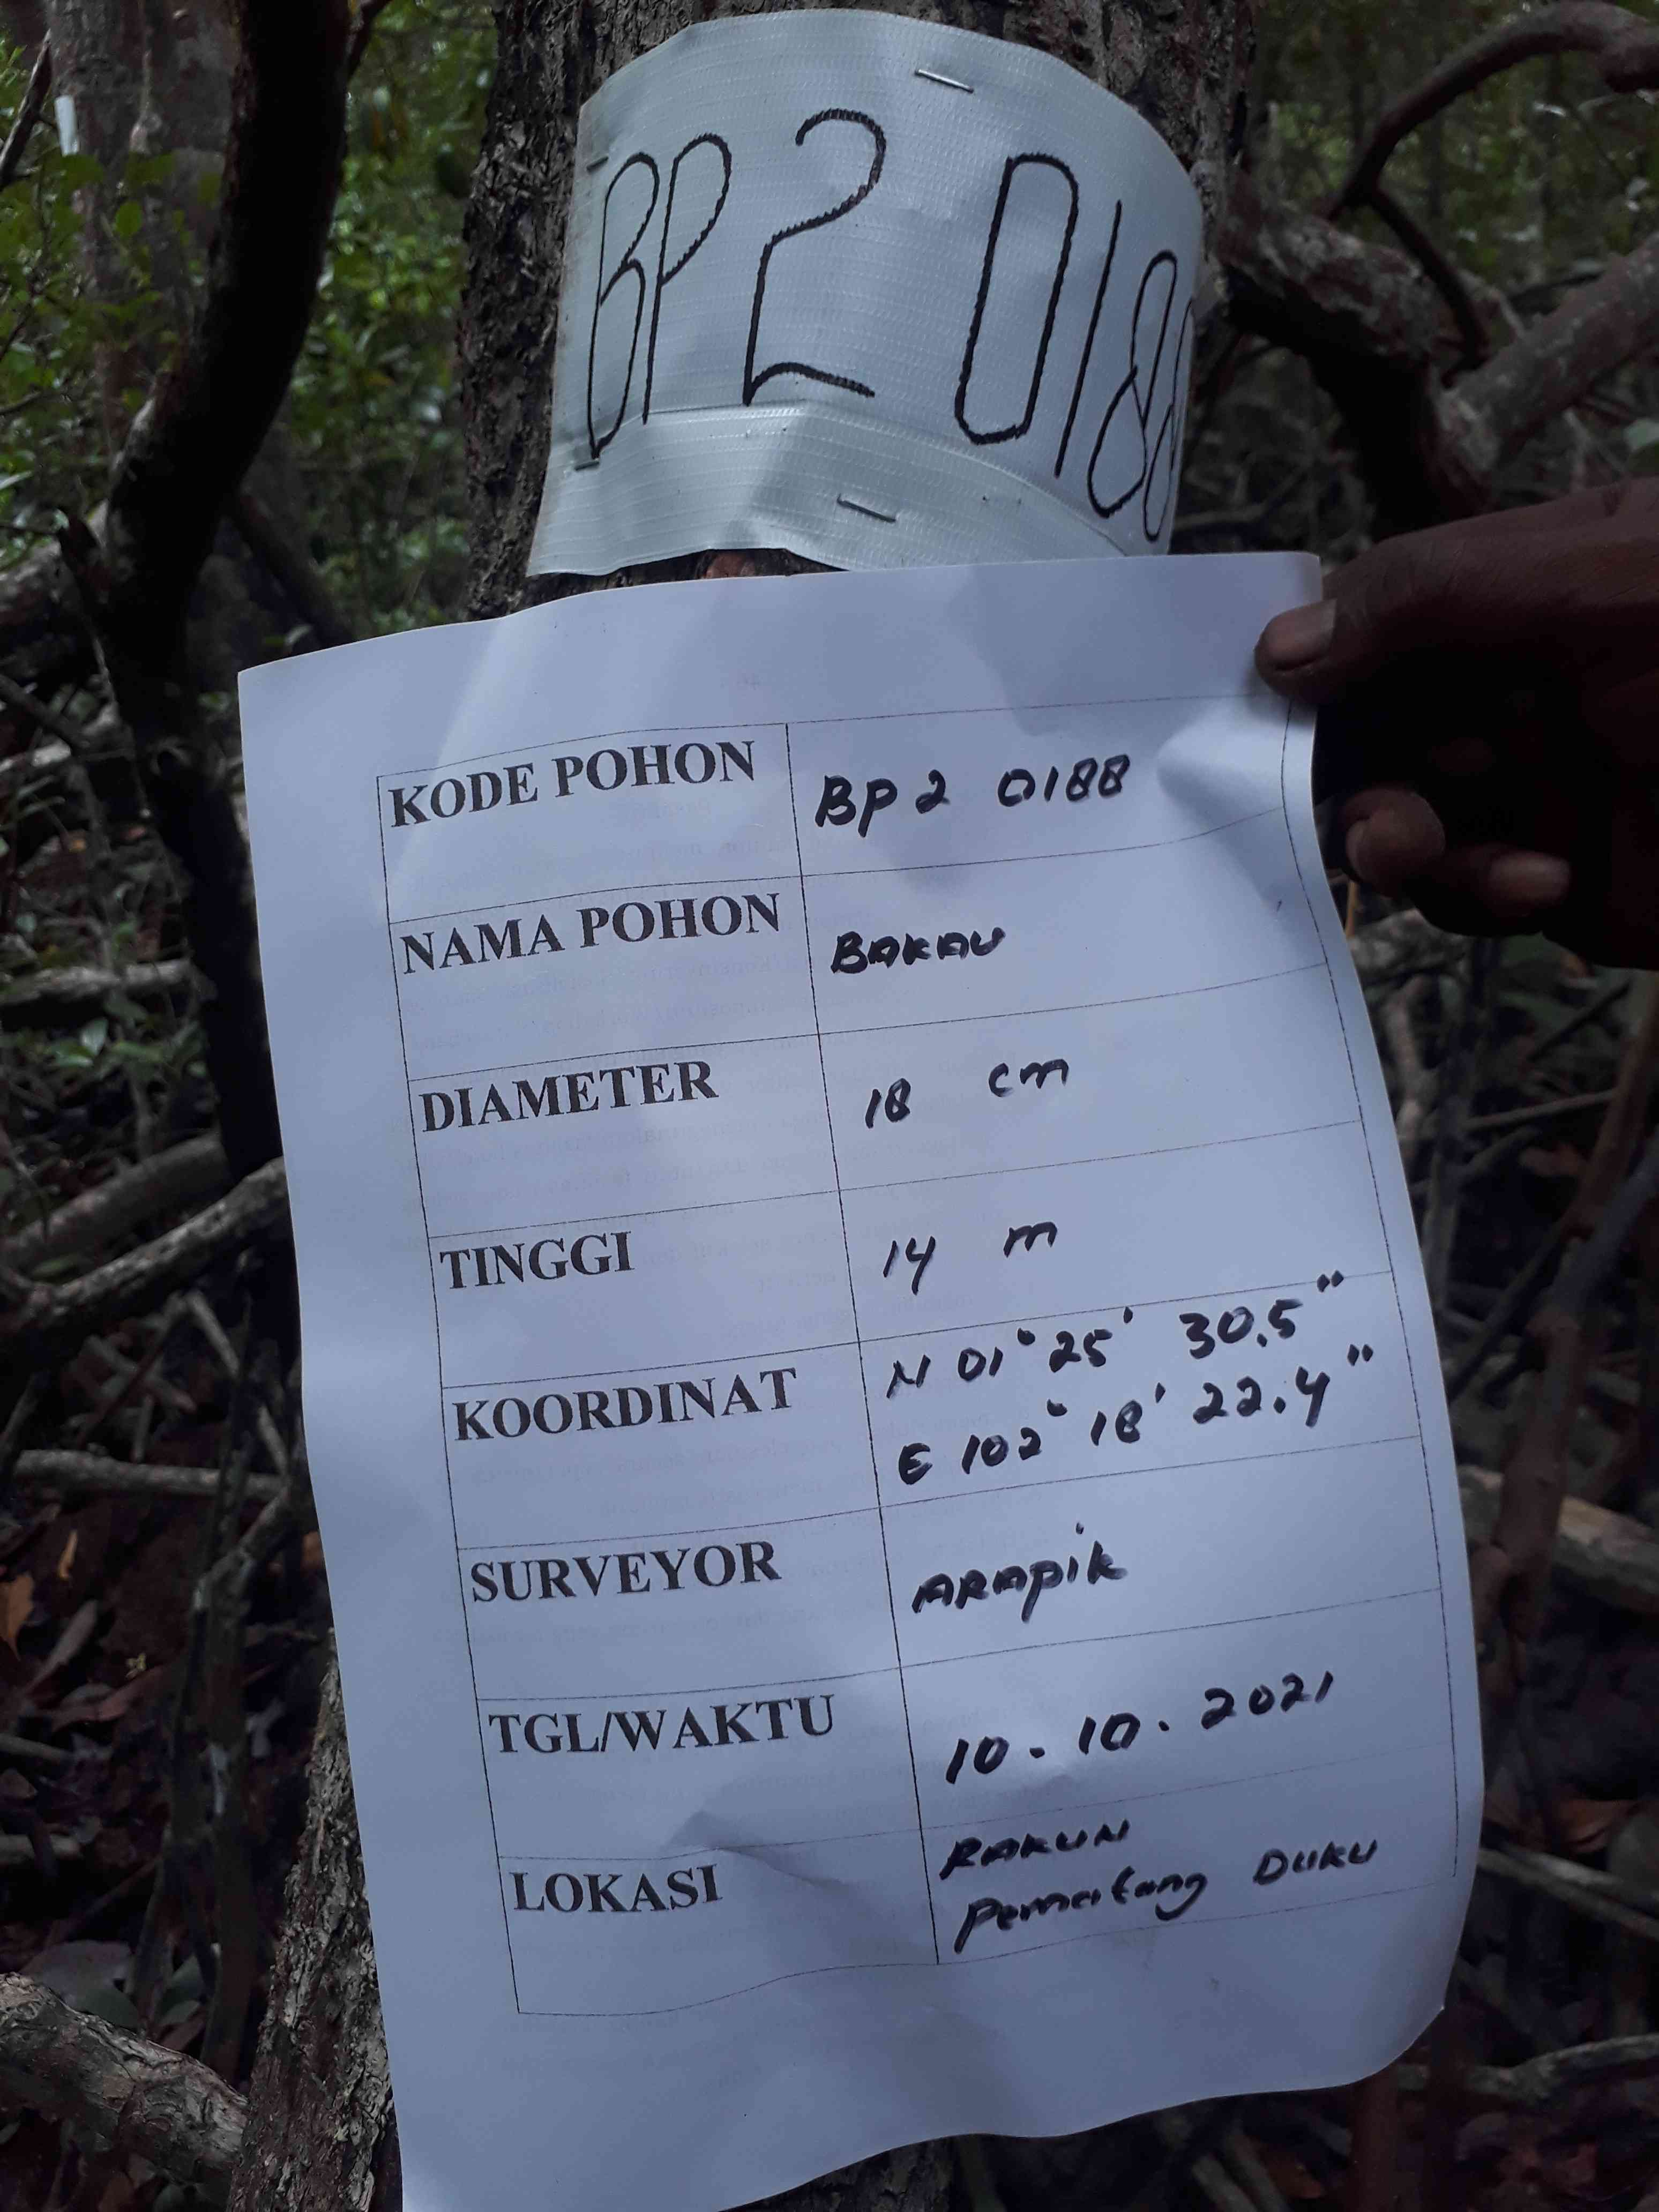 BP 2 0188
KODE POHON BP 2 0188
NAMA POHON BAKAU
DIAMETER 18 cm
TINGGI 14 m
KOORDINAT N 01° 25' 30.5"
E 102° 18' 22.4"
SURVEYOR ARAPik
TGL/WAKTU 10 - 10 . 2021
LOKASI RAKUN
Pematang DUKU